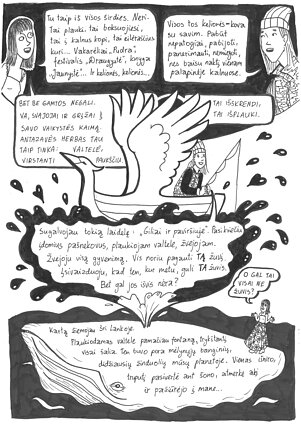 Tu taip iš visos širdies. Neri.
Tai plauki, tai boksuojiesi,
tai į kalnus kopi, tai elektrines
kuri... Vakarėliai, „Rudra"
festivalis „Draugystė", knyga
„Jaunystė". Ir kelionės, kelionės...
Visos tos kelionės – kova
su savim. Pabūt
nepatogiai, patižoti,
panerimauti, nemiegoti,
nes baisu naktį vienam
palapinėje kalnuose.
BET BE GAMTOS NEGALI.
VA, SVAJOJAI IR GRĮŽAI Į
SAVO VAIKYSTĖS KAIMĄ.
ANTAZAVĖS HERBAS TAU
TAIP TINKA: VALTELĖ,
VIRSTANTI PAUKŠČIU.
TAI IŠSKRENDI,
TAI IŠPLAUKI.
Sugalvojau tokią laidelę: „Giliai ir paviršiuje". Pasikviečiu
įdomius pašnekovus, plaukiojam valtele, žvejojam.
Žvejoju visą gyvenimą. Vis noriu pagauti TĄ žuvį.
Įsivaizduoju, kad ten, kur metu, guli TA žuvis.
Bet gal jos išvis nėra?
O GAL TAI
VISAI NE
ŽUVIS?
Kartą žiemojau Šri Lankoje.
Plaukiodamas valtele pamačiau fontaną, trykštantį
visai šalia. Ten buvo pora mėlynųjų banginių,
didžiausių žinduolių mūsų planetoje. Vienas išniro,
truputį pasivertė ant šono, atmerkė akį
ir pažiūrėjo į mane...